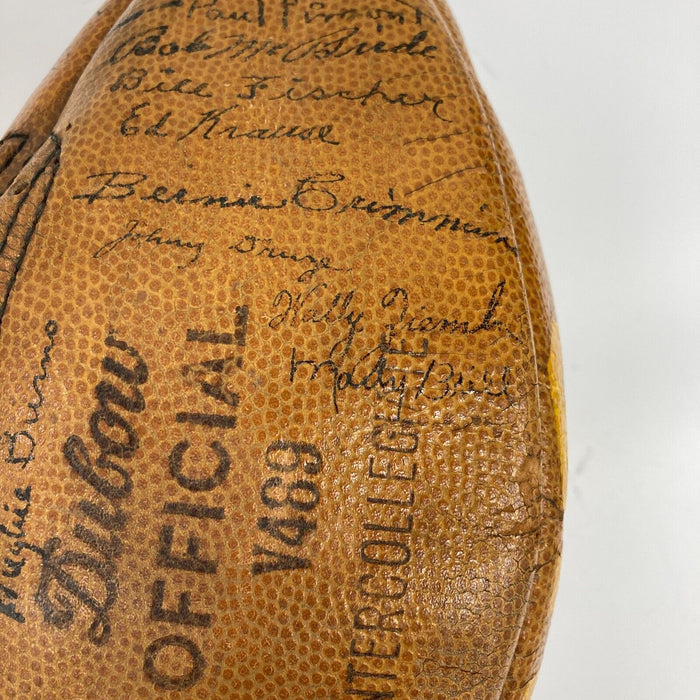 Paul
Bob McBride
Bill Fischer
Ed Krause
Bernie Crimmins
Johnny Druze
Wally Ziemba
Marty Brill
Hughie
Dubow
OFFICIAL
V489
INTERCOLLEGIATE